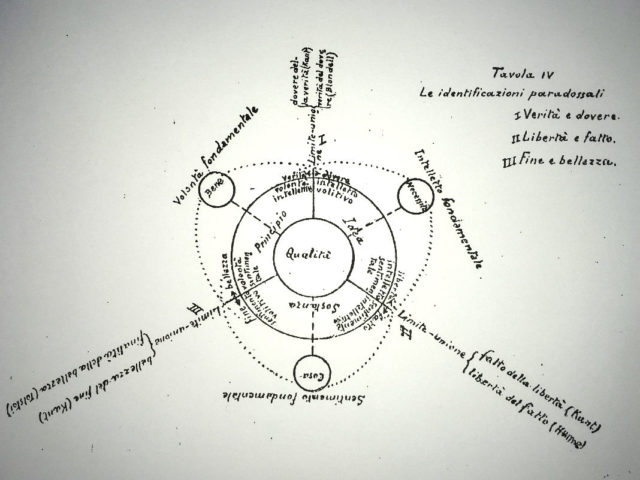 Tavola IV
Le identificazioni paradossali
I Verità e dovere.
II Libertà e fatto.
III Fine e bellezza.
dovere del-
la verità (Kant)
verità del dove
re (Blondell)
Limite-unio
ne
I
Volontà fondamentale
Bene
Intelletto fondamentale
verità e dovere
volontà
intellettiva
intelletto
volitivo
Principio
Idea
Qualità
Sostanza
bellezza
fine
volontà
sentimento
volitivo
libertà
fatto
intelletto
sentimento
intellettivo
III
Limite-unione
finalità della bellezza (Tolstoi)
bellezza del fine (Kant)
II
Limite-unione
fatto della libertà (Kant)
libertà del fatto (Hume)
Cosa
Sentimento fondamentale